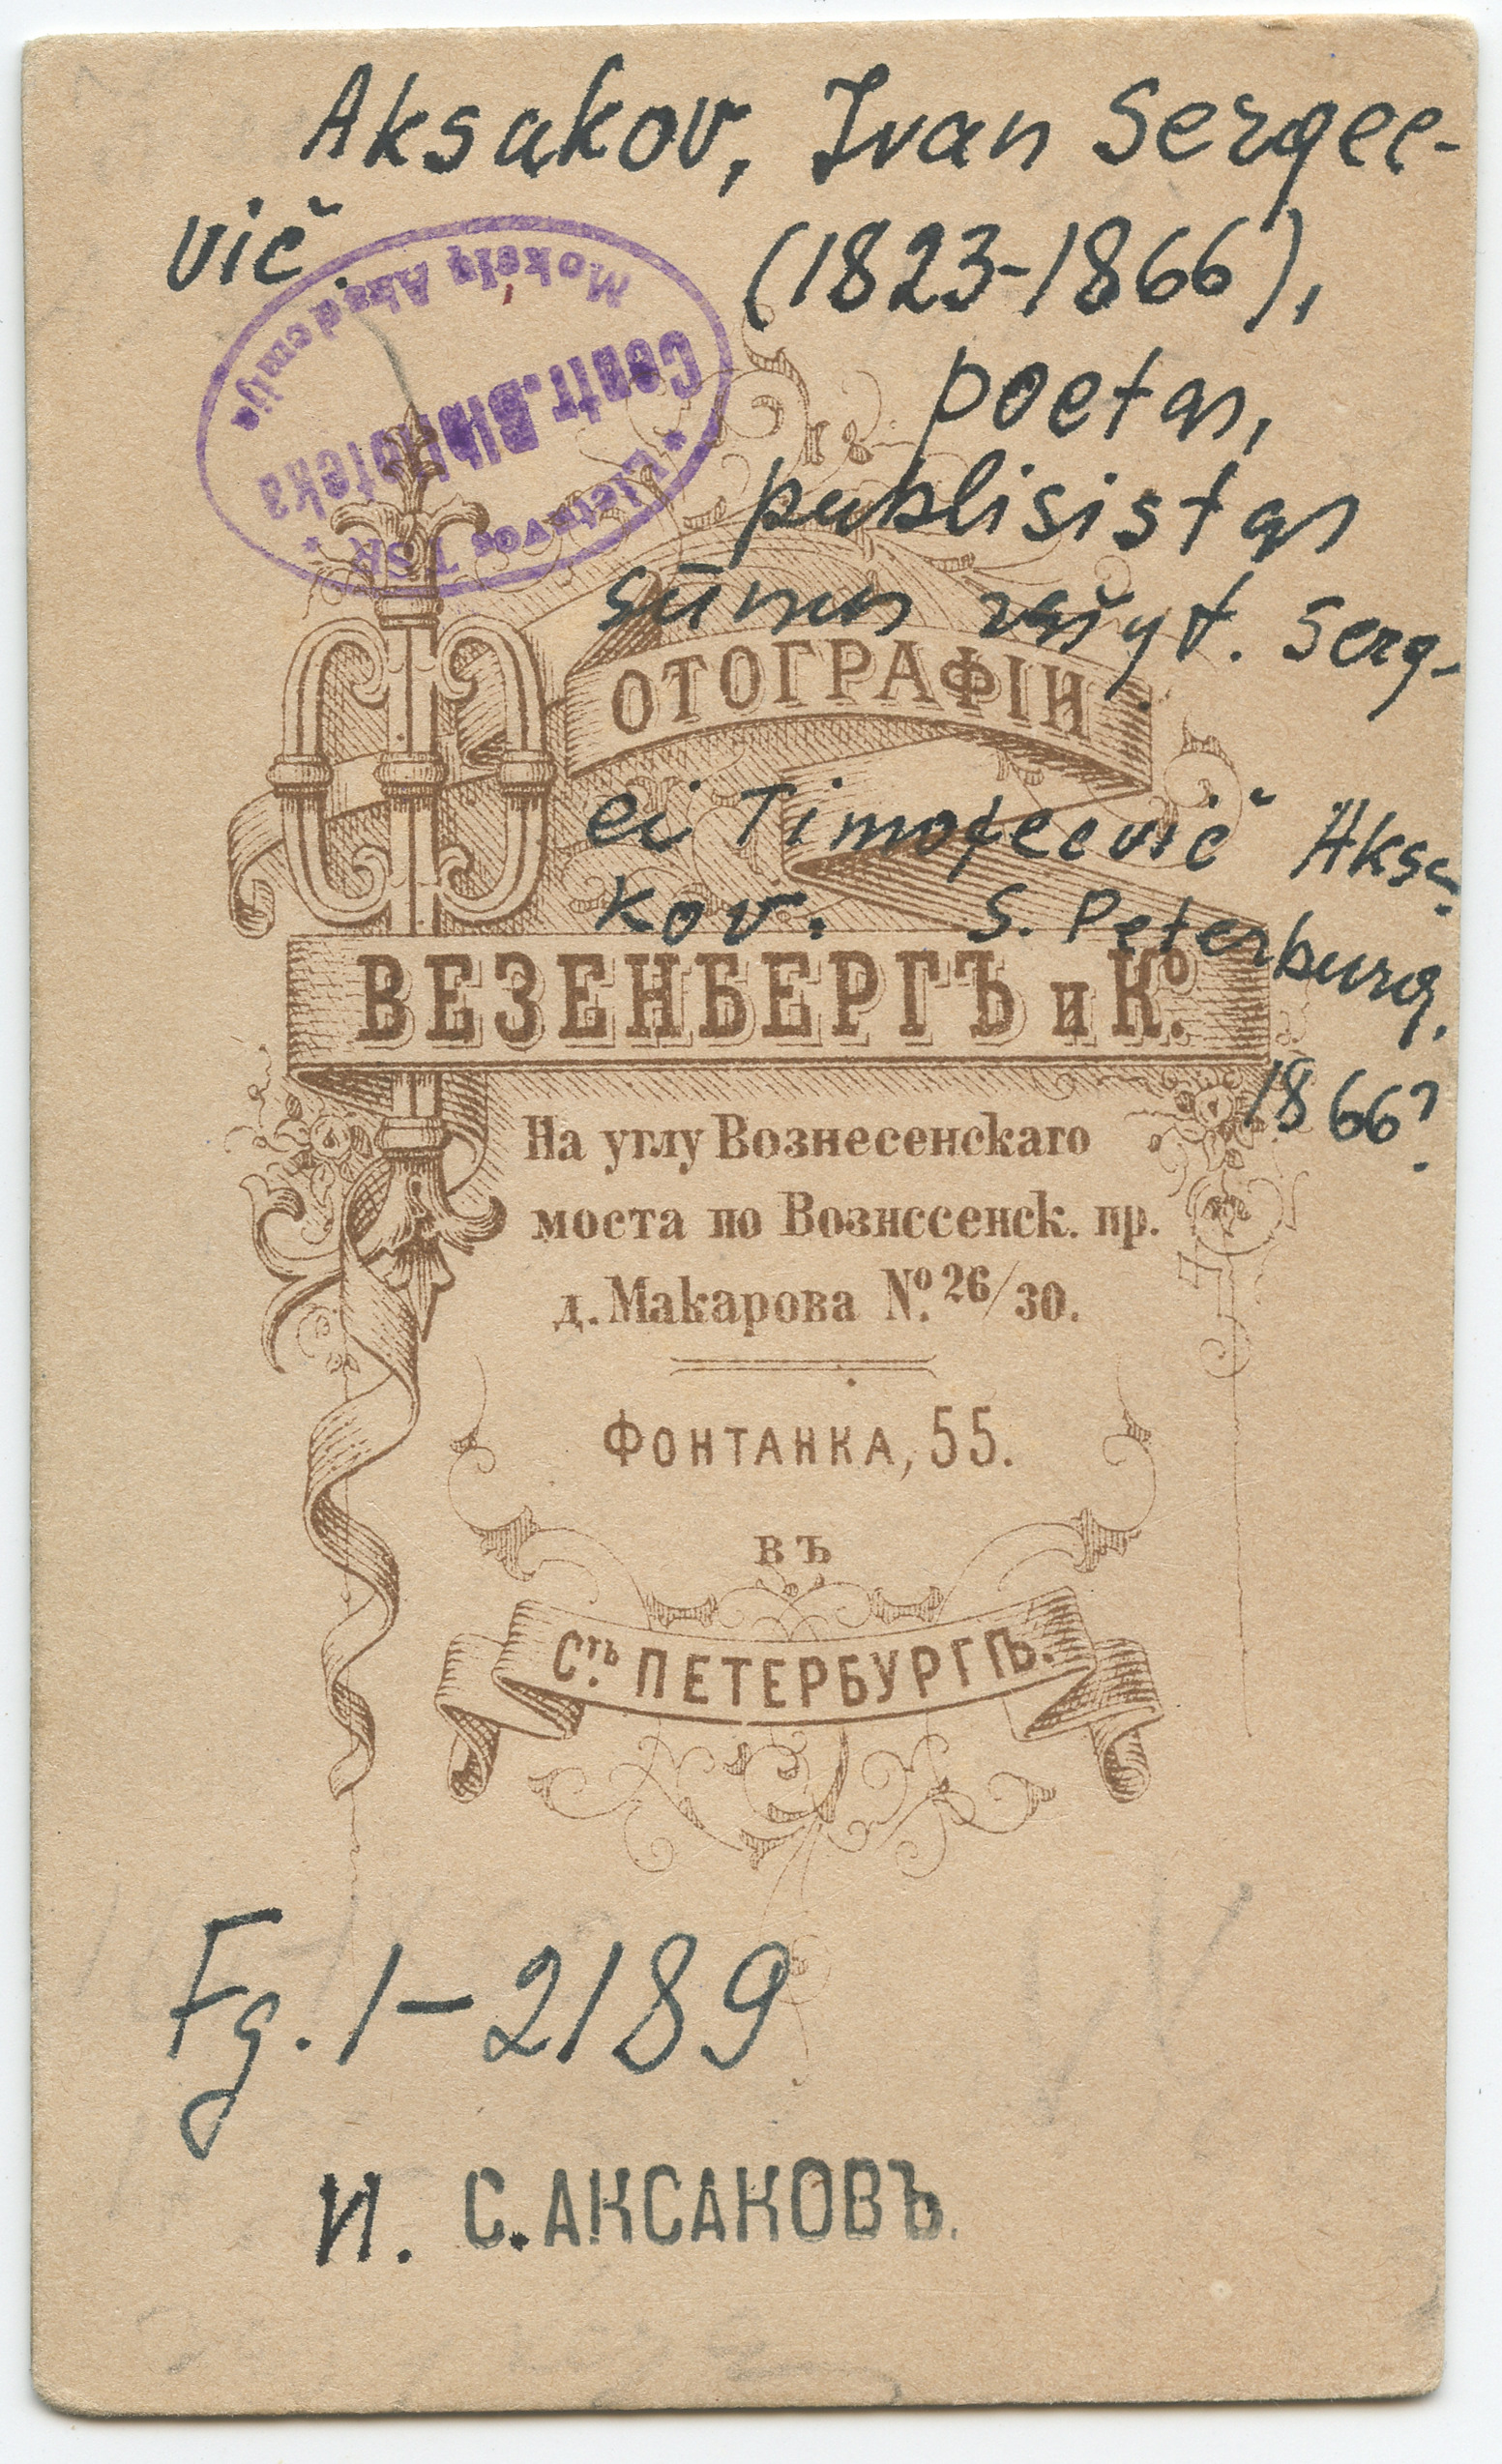 Aksakov, Ivan Sergee-
vič.
(1823-1866),
poetas,
publisistas
sūnus rašyt. Serg-
ei Timofeevič Aksa-
kov. S. Peterburg.
1866?
Lietuvos TSR
Mokslų Akademija
Centr. Biblioteka
ФОТОГРАФІИ
ВЕЗЕНБЕРГЪ и Ко.
На углу Вознесенскаго
моста по Вознесенск. пр.
д. Макарова №. 26/30.
ФОНТАНКА, 55.
ВЪ
Стъ. ПЕТЕРБУРГѢ.
Fg. 1-2189
И. С. АКСАКОВЪ.